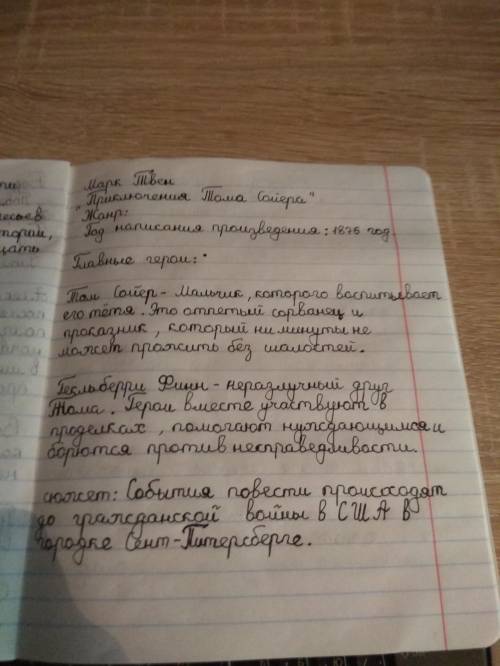 ести
есьев
тории,
щать
Марк Твен
"Приключения Тома Сойера"
Жанр:
Год написания произведения: 1876 год.
Главные герои:
Том Сойер - Мальчик, которого воспитывает
его тётя. Это отпетый сорванец и
проказник, который ни минуты не
может прожить без шалостей.
Гекльберри Финн - неразлучный друг
Тома. Герои вместе участвуют в
проделках, помогают нуждающимся и
борются против несправедливости.
сюжет: События повести происходят
до гражданской войны в США в
городке Сент-Питерсберге.